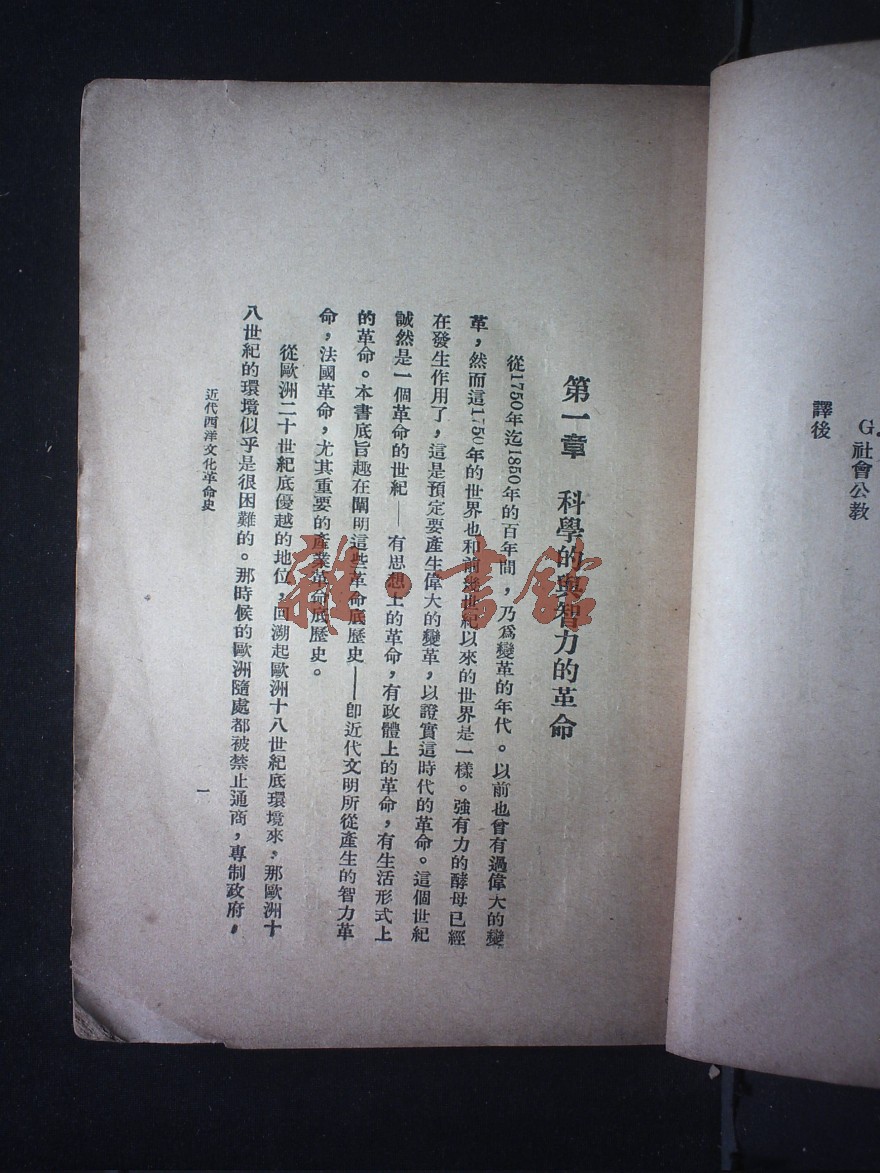 G.社會公教
譯後
第一章　科學的與智力的革命
從1750年迄1850年的百年間，乃爲變革的年代。以前也曾有過偉大的變
革，然而這1750年的世界也和前幾世紀以來的世界是一樣。強有力的酵母已經
在發生作用了，這是預定要產生偉大的變革，以證實這時代的革命。這個世紀
誠然是一個革命的世紀——有思想上的革命，有政體上的革命，有生活形式上
的革命。本書底旨趣在闡明這些革命底歷史——卽近代文明所從產生的智力革
命，法國革命，尤其重要的產業革命底歷史。
從歐洲二十世紀底優越的地位，回溯起歐洲十八世紀底環境來，那歐洲十
八世紀的環境似乎是很困難的。那時候的歐洲隨處都被禁止通商，專制政府，
近代西洋文化革命史
一
雜·書館